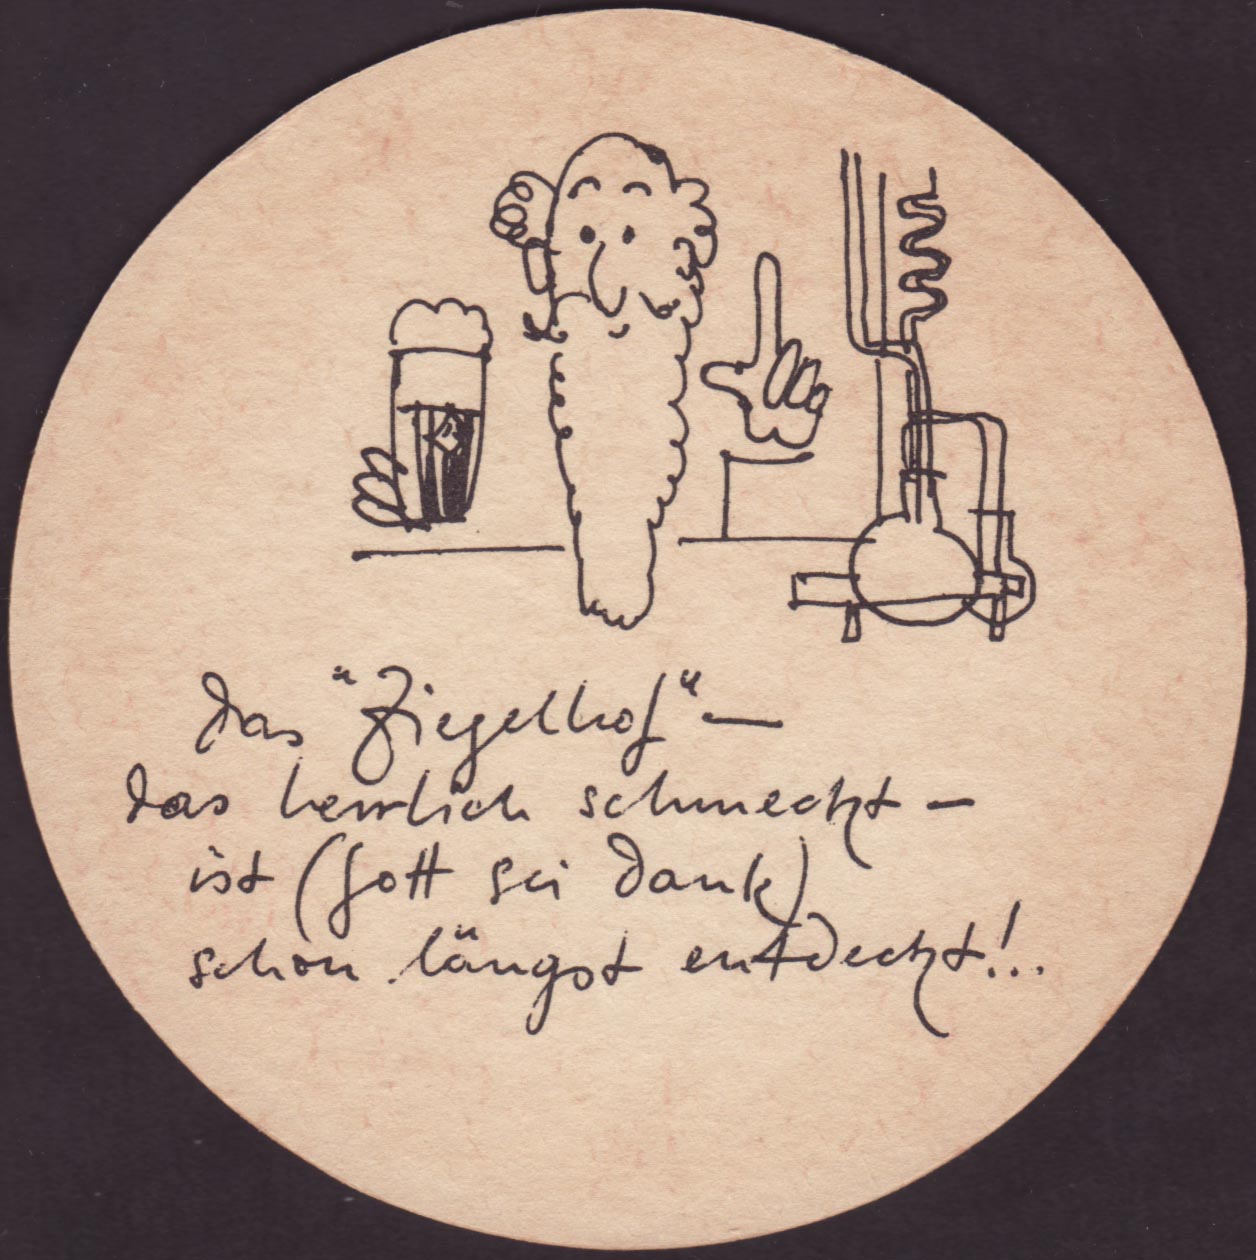 Das "Ziegelhof" —
das herrlich schmeckt —
ist (Gott sei Dank)
schon längst entdeckt!..